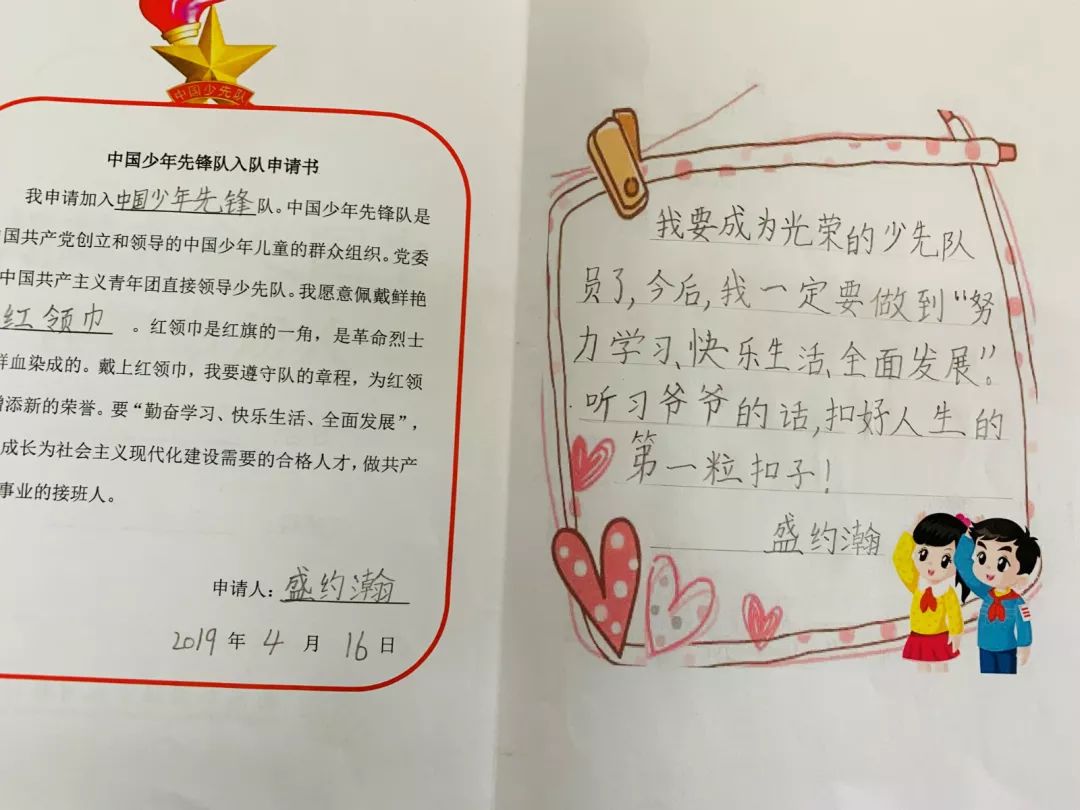 中国少先队
中国少年先锋队入队申请书
我申请加入中国少年先锋队。中国少年先锋队是
国共产党创立和领导的中国少年儿童的群众组织。党委
中国共产主义青年团直接领导少先队。我愿意佩戴鲜艳
红领巾。红领巾是红旗的一角，是革命烈士
鲜血染成的。戴上红领巾，我要遵守队的章程，为红领
增添新的荣誉。要“勤奋学习、快乐生活、全面发展”，
成长为社会主义现代化建设需要的合格人才，做共产
事业的接班人。
申请人：盛约瀚
2019年4月16日
我要成为光荣的少先队
员了，今后，我一定要做到“努
力学习、快乐生活、全面发展”。
听习爷爷的话，扣好人生的
第一粒扣子！
盛约瀚